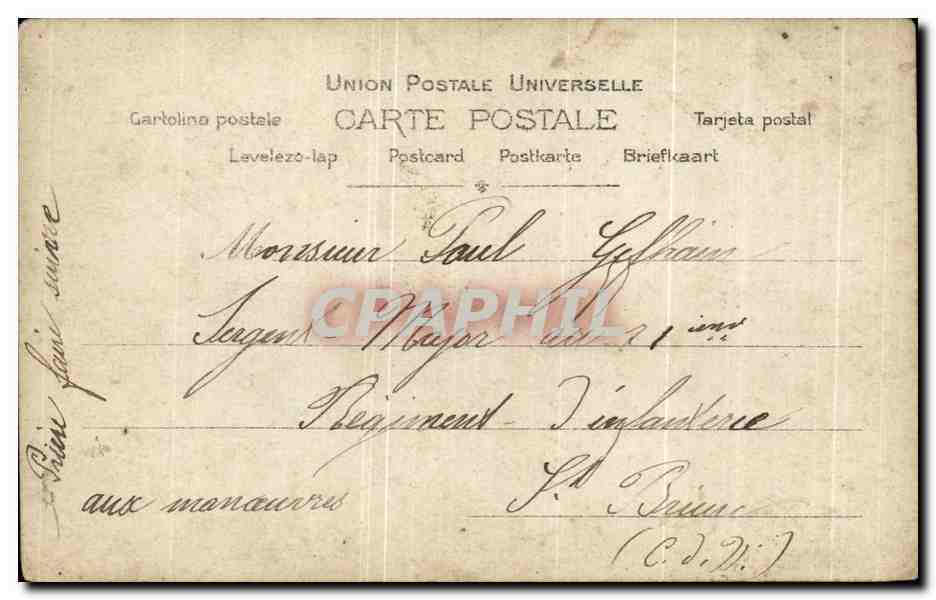 UNION POSTALE UNIVERSELLE
Cartolina postale CARTE POSTALE Tarjeta postal
Levelezö-lap Postcard Postkarte Briefkaart
Monsieur Paul
CPARHIL
Sergent-Major au ième
Régiment d'infanterie
St Brieuc
(C. d. N.)
aux manœuvres
Prière faire suivre